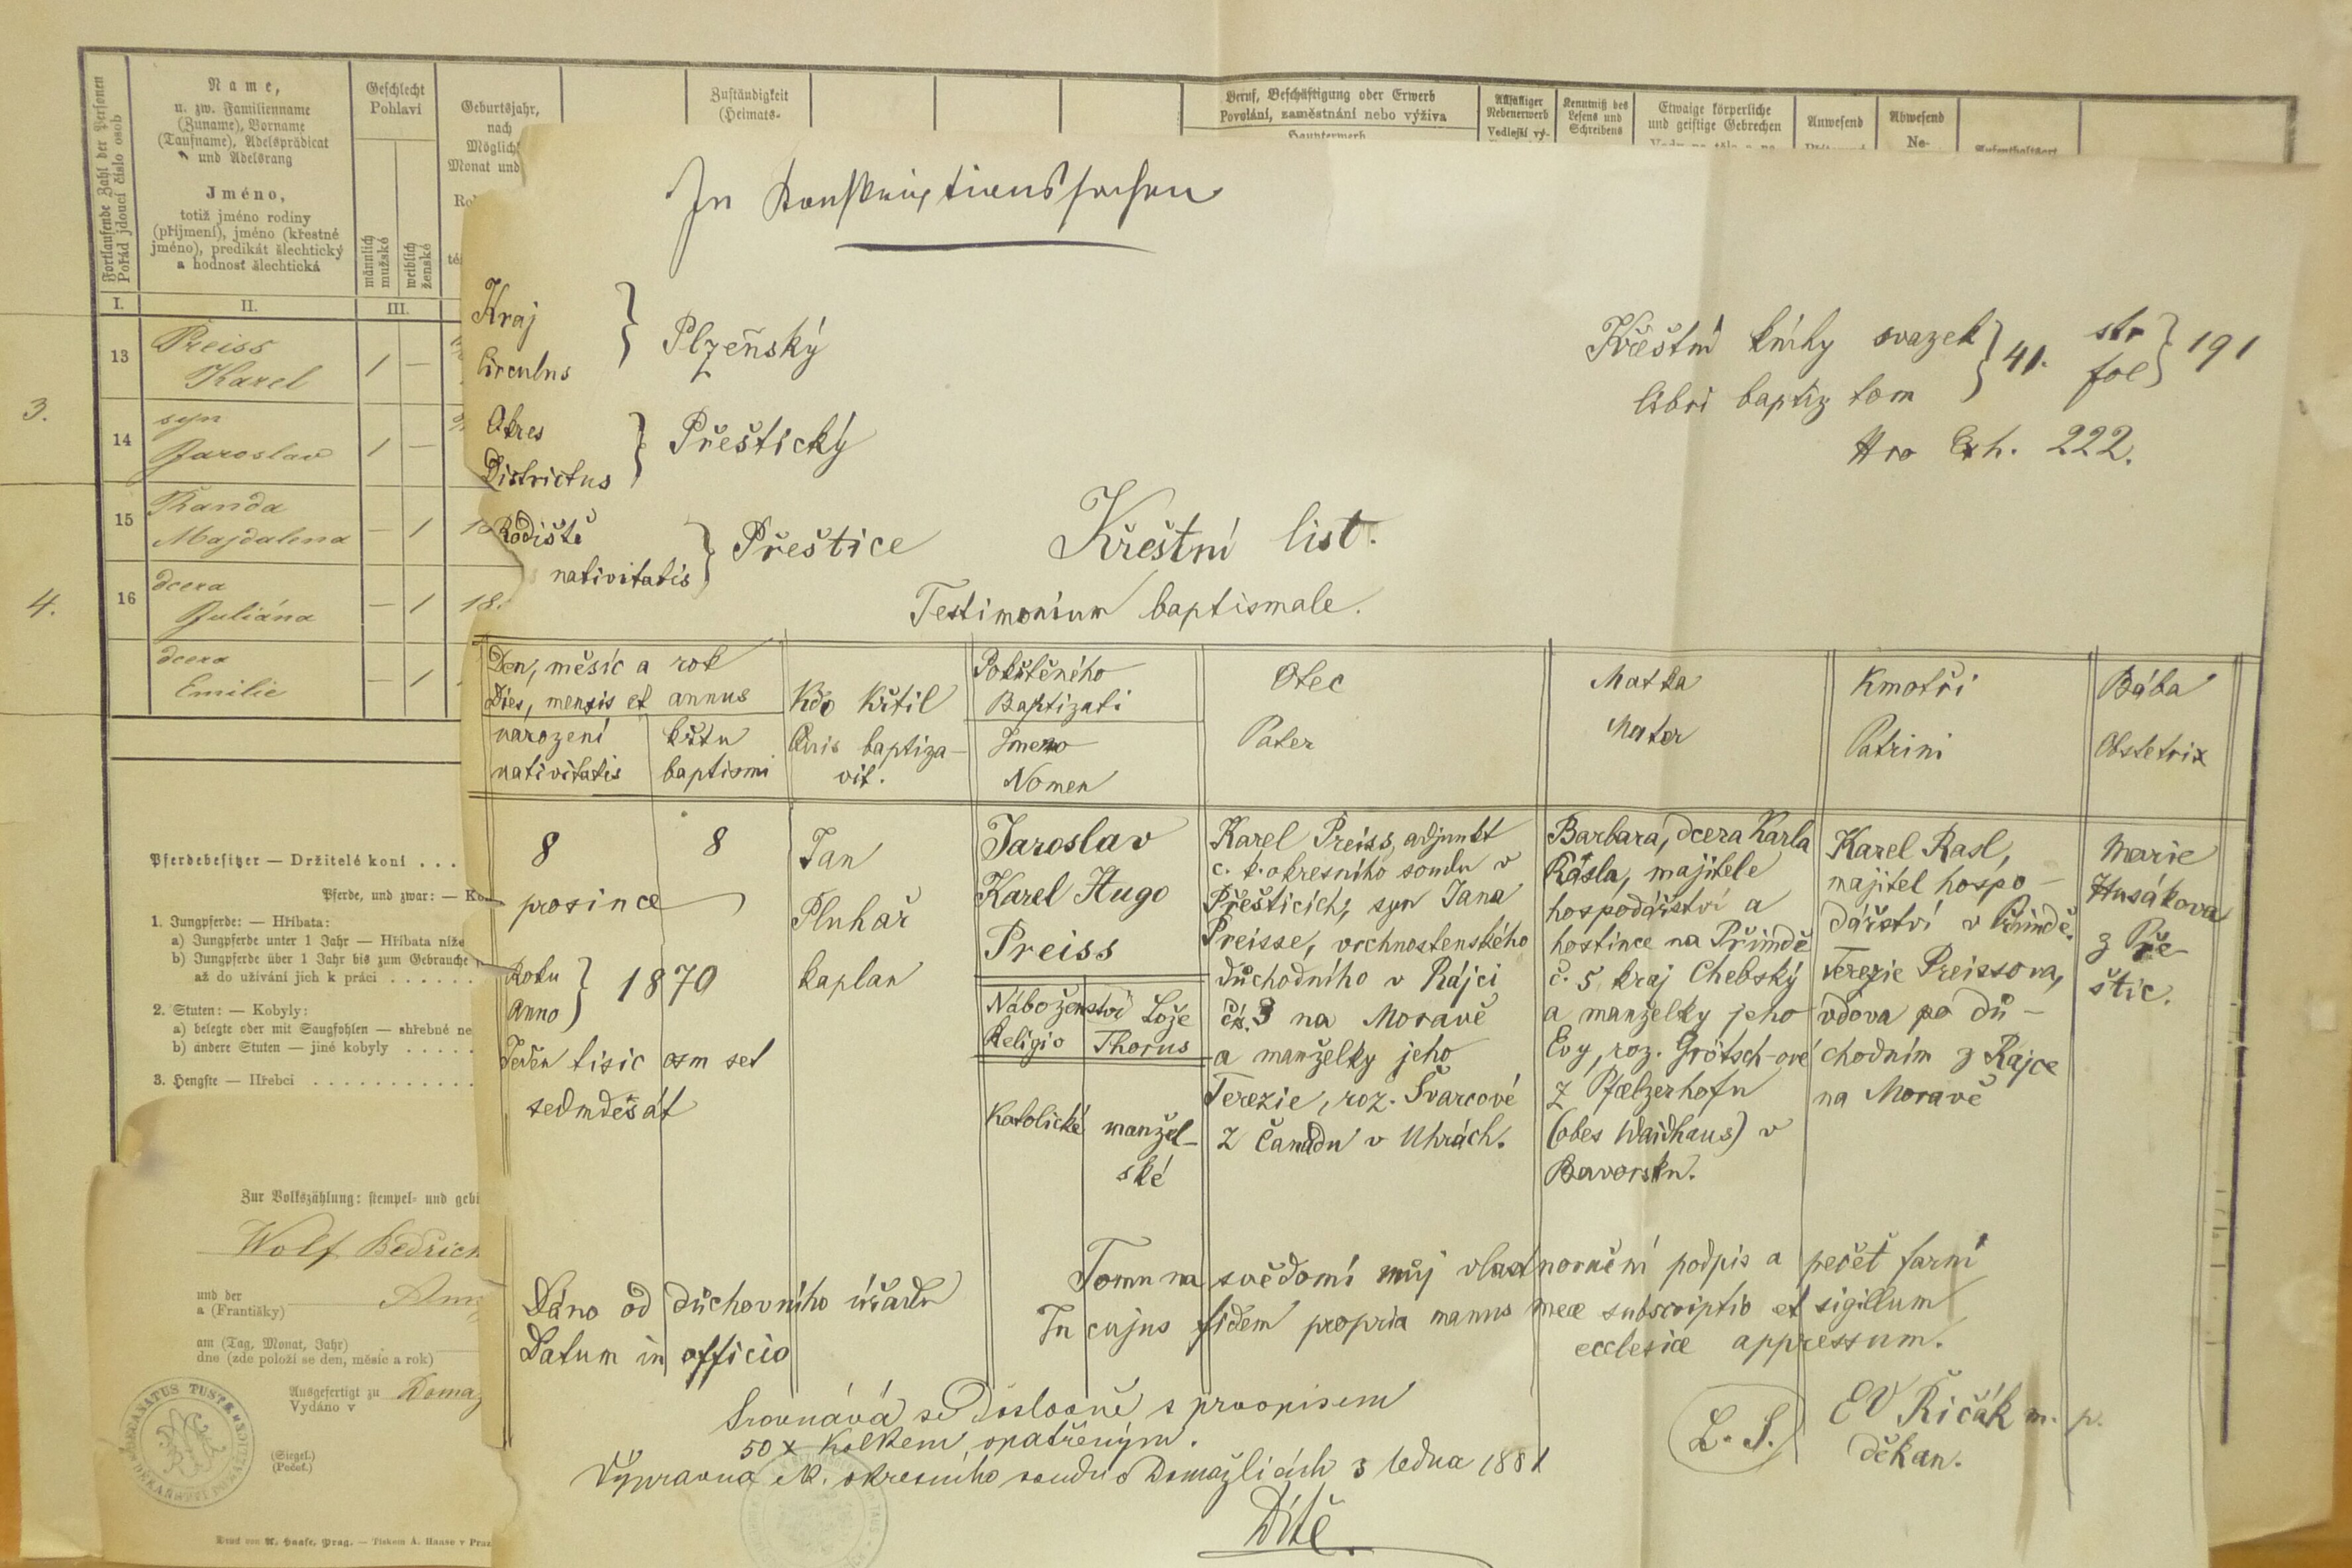 Name,
u. zw. Familienname
(Zuname), Vorname
(Taufname), Adelsprädicat
und Adelsrang
Jméno,
totiž jméno rodiny
(příjmení), jméno (křestné
jméno), predikát šlechtický
a hodnost šlechtická
Fortlaufende Zahl der Personen
Pořád jdoucí číslo osob
Geschlecht
Pohlaví
männlich
mužské
weiblich
ženské
Geburtsjahr,
nach
Möglich
Monat und
Zuständigkeit
(Heimats-
Beruf, Beschäftigung oder Erwerb
Povolání, zaměstnání nebo výživa
Haupterwerb
Allfälliger
Nebenerwerb
Vedlejší vý-
Kenntniß des
Lesens und
Schreibens
Etwaige körperliche
und geistige Gebrechen
Anwesend
Abwesend
Ne-
Aufenthaltsort
I.
II.
III.
13 Preiss
Karel 1 —
3.
14 syn
Jaroslav 1 —
15 Kanda
Majdalena — 1
4.
16 dcera
Juliána — 1 18
dcera
Emilie — 1
Pferdebesitzer — Držitelé koní . . .
Pferde, und zwar: — Ko
1. Jungpferde: — Hříbata:
a) Jungpferde unter 1 Jahr — Hříbata níže
b) Jungpferde über 1 Jahr bis zum Gebrauche
až do užívání jich k práci . . . . . .
2. Stuten: — Kobyly:
a) belegte oder mit Saugfohlen — shřebné ne
b) andere Stuten — jiné kobyly . . . . .
3. Hengste — Hřebci . . . . . . . . . . . .
Zur Volkszählung: stempel- und gebü
Wolf Bedřich
und der
a (Františky) Ann
am (Tag, Monat, Jahr)
dne (zde položí se den, měsíc a rok)
Ausgefertigt zu
Vydáno v Domaž
(Siegel.)
(Pečeť.)
Druck von A. Haase, Prag. — Tiskem A. Haase v Praz
In Konskriptionssachen
Kraj
Circulus } Plzeňský
Okres
Districtus } Přeštický
Rodiště
nativitatis } Přeštice
Křestní knihy svazek
libri baptiz tom } 41. str
fol } 191
Nro Exh. 222.
Křestní list.
Testimonium baptismale.
Den, měsíc a rok
Dies, mensis et annus
narození
nativitatis
křtu
baptismi
Kdo křtil
Quis baptiza-
vit.
Pokřtěného
Baptizati
Jmeno
Nomen
Otec
Pater
Matka
Mater
Kmotři
Patrini
Bába
Obstetrix
8 8
prosince
Roku
Anno } 1870
Jeden tisíc osm set
sedmdesát
Jan
Pluhař
kaplan
Jaroslav
Karel Hugo
Preiss
Náboženství
Religio
Lože
Thorus
Katolické
manžel-
ské
Karel Preiss, adjunkt
c. k. okresního soudu v
Přešticích, syn Jana
Preisse, vrchnostenského
důchodního v Rájci
čís. 3 na Moravě
a manželky jeho
Terezie, roz. Švarcové
z Čanadu v Uhrách.
Barbara, dcera Karla
Rásla, majitele
hospodářství a
hostince na Přimdě
č. 5, kraj Chebský
a manželky jeho
Evy, roz. Grötsch-ové
z Pfælzerhofu
(obec Waidhaus) v
Bavorsku.
Karel Rasl,
majitel hospo-
dářství v Přimdě.
Terezie Preissova,
vdova po dů-
chodním z Rajce
na Moravě
Marie
Husákova
z Pře-
štic.
Dáno od duchovního úřadu
Datum in officio
Tomu na svědomí můj vlastnoruční podpis a pečeť farní
In cujus fidem propria manus meæ subscriptio et sigillum
ecclesiæ appressum.
Srovnává se doslovně s prvopisem
50 x kolkem opatřeným.
Výpravna ck. okresního soudu v Domažlicích 3 ledna 1881
Dítě
L. S.
EV Řičák m. p.
děkan.